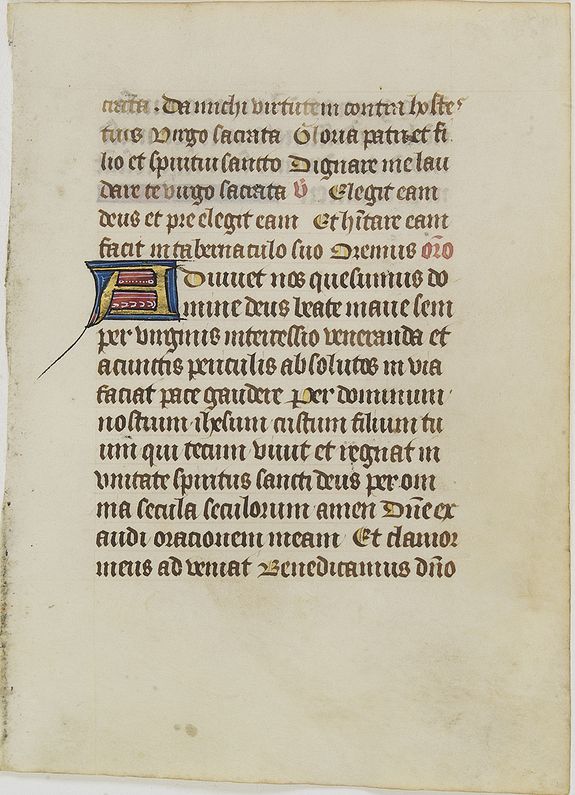 crata . Da michi virtutem contra hostes
tuos Virgo sacrata Gloria patri et fi
lio et spiritui sancto Dignare me lau
dare te virgo sacrata V̄ Elegit eam
deus et pre elegit eam Et hītare eam
facit in tabernaculo suo Oremus orō
Adiuuet nos quesumus do
mine deus beate marie sem
per virginis intercessio veneranda et
a cunctis periculis absolutos in via
faciat pace gaudere Per dominum
nostrum ihesum cristum filium tu
um qui tecum viuit et regnat in
vnitate spiritus sancti deus per om
nia secula seculorum amen Dn̄e ex
audi orationem meam Et clamor
meus ad veniat Benedicamus dn̄o